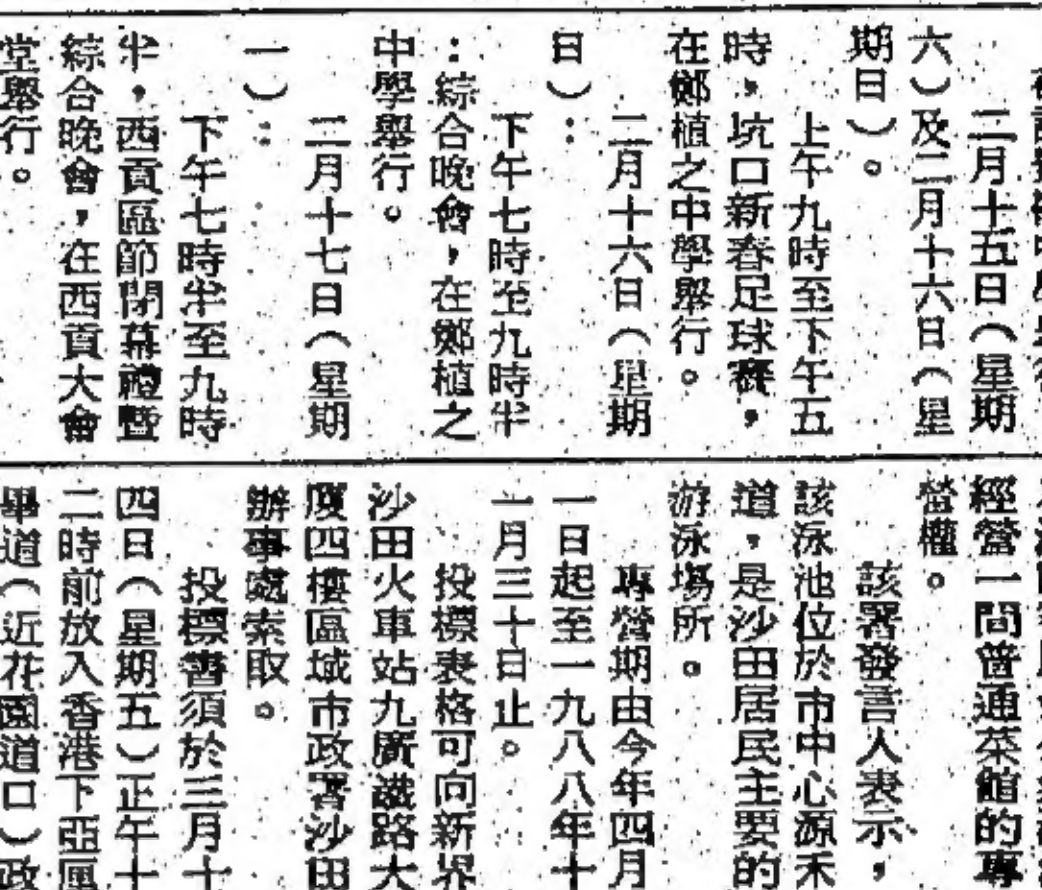 二月十五日（星期
六）及二月十六日（星
期日）。
上午九時至下午五
時，坑口新春足球賽，
在鄭植之中學舉行。
二月十六日（星期
日）：
下午七時至九時半
：綜合晚會，在鄭植之
中學舉行。
二月十七日（星期
一）：
下午七時半至九時
半，西貢區節閉幕禮暨
綜合晚會，在西貢大會
堂舉行。
經營一間普通茶館的專
營權。
該署發言人表示，
該泳池位於市中心源禾
道，是沙田居民主要的
游泳場所。
專營期由今年四月
一日起至一九八八年十
一月三十日止。
投標表格可向新界
沙田火車站九廣鐵路大
廈四樓區域市政署沙田
辦事處索取。
投標書須於三月十
四日（星期五）正午十
二時前放入香港下亞厘
畢道（近花園道口）政